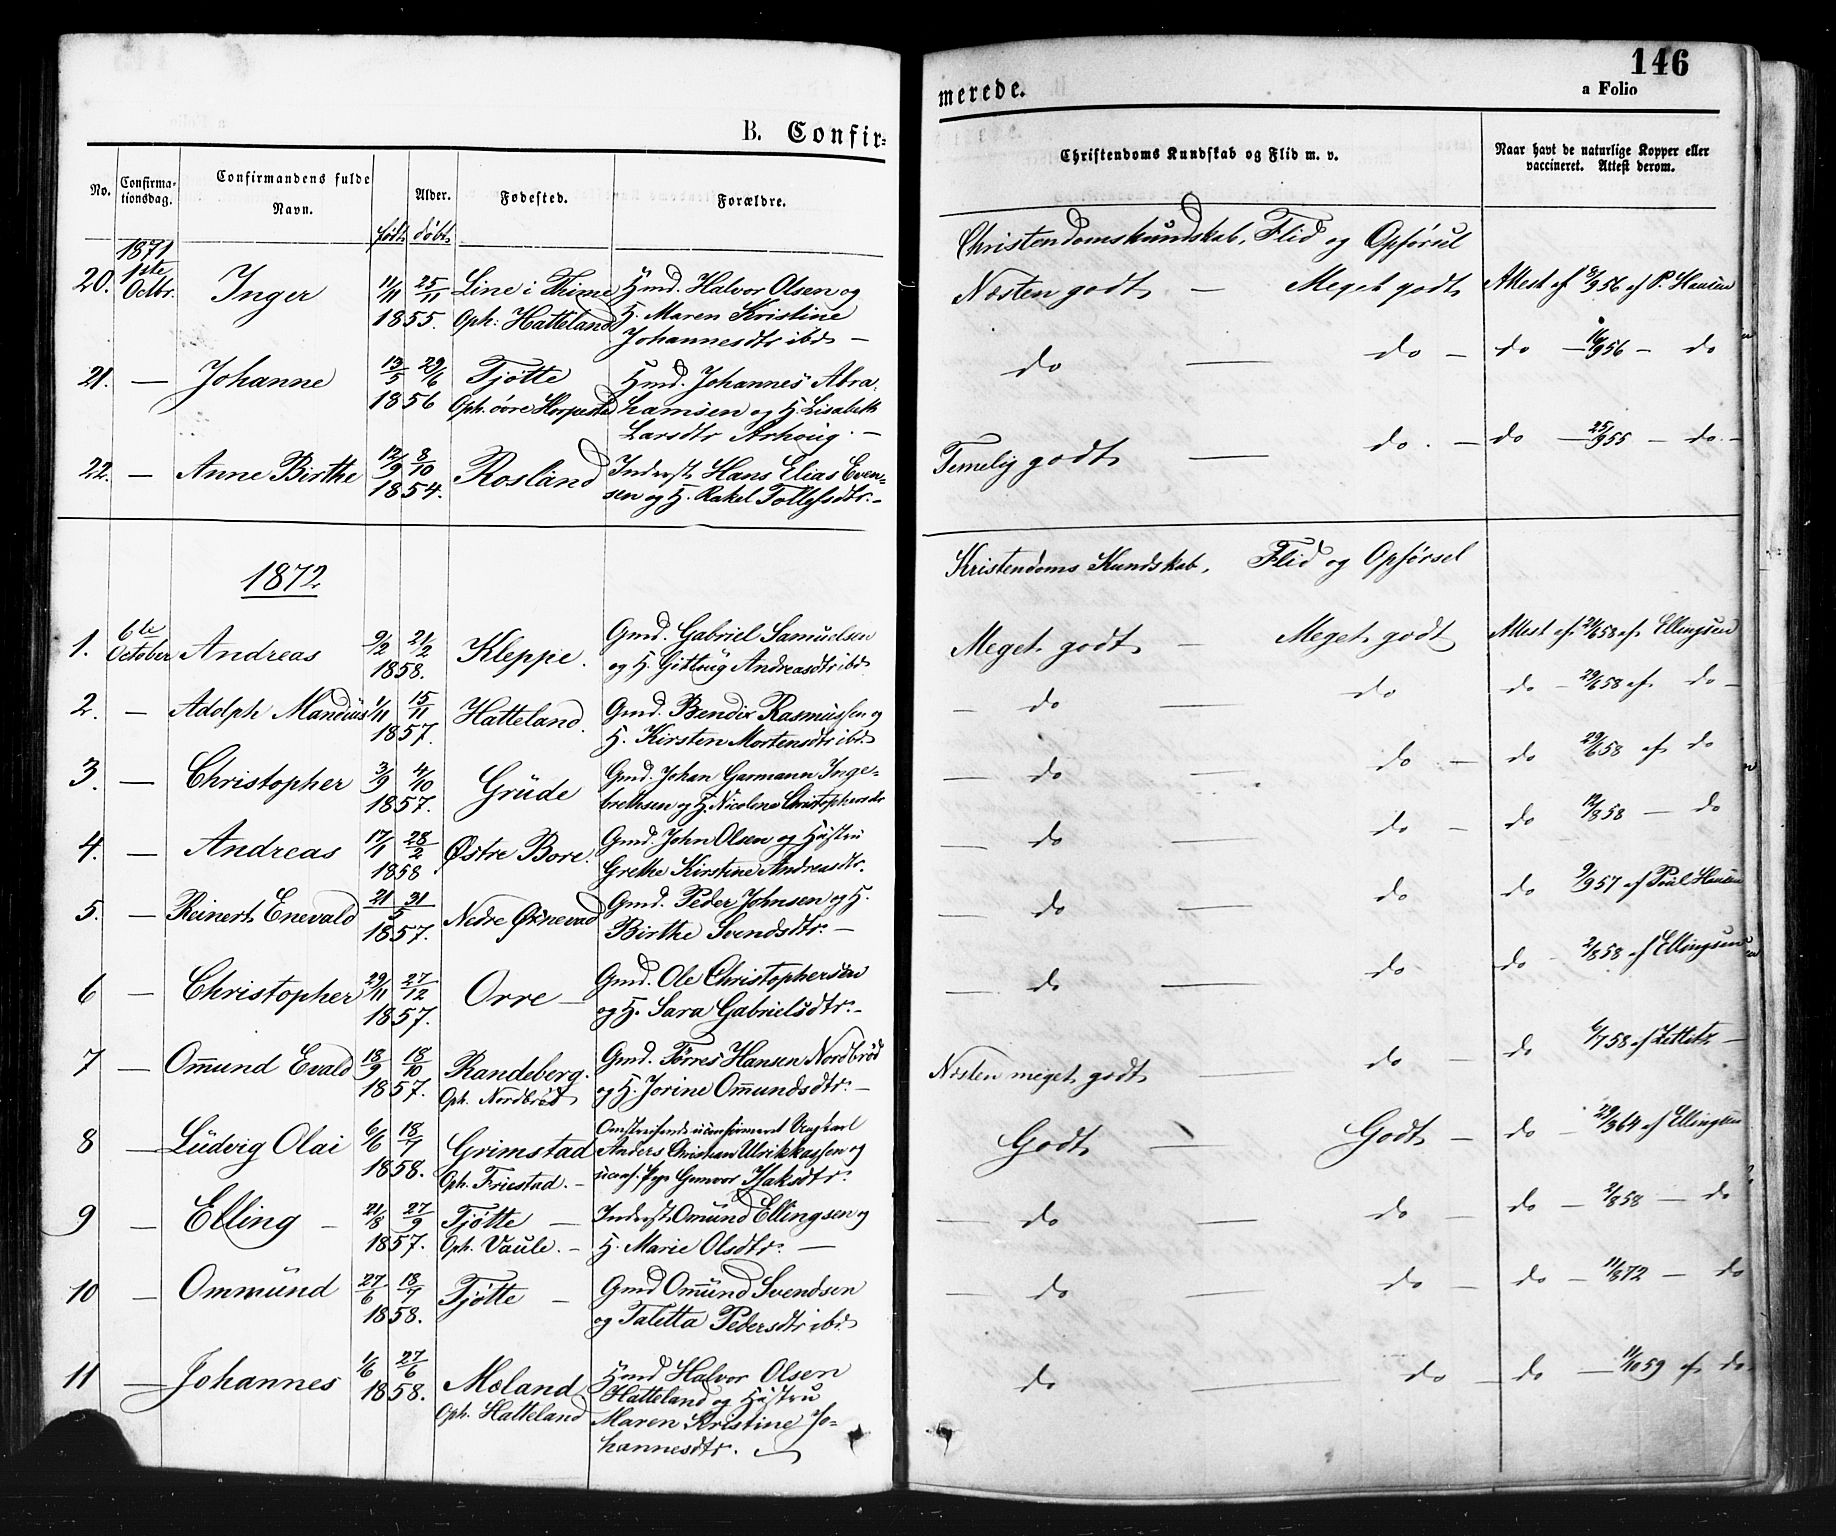 B. Confir-
No.
Confirma-
tionsdag.
Confirmandens fulde
Navn.
Alder.
født døbt
Fødested.
Forældre.
1871
20. 1ste Octbr. Inger 11/11 25/11 Line i Thime Hmd. Halvor Olsen og
1855. Oph: Hatteland H. Maren Kristine
Johannesdtr ibd —
21. — Johanne 13/5 29/6 Tjøtte Hmd. Johannes Abra-
1856 Oph. øvre hamsen og H. Lisabeth
Larsdtr —
22. — Anne Birthe 12/9 8/10 Rosland Inderst. Hans Elias Even-
1854. sen og H. Rakel Tollefsdtr. —
1872
1. 6te October Andreas 9/2 21/2 Kleppe. Gmd. Gabriel Samuelsen
1858. og H. Andreasdtr ibd
2. — Adolph Mandius 1/11 15/11 Hatteland. Gmd. Bendix Rasmussen og
1857. H. Kirsten Mortensdtr ibd.
3. — Christopher 3/9 4/10 Grude Gmd. Johan Garmann Inge-
1857. brethsen og H. Nicoline Christophersdtr
4. — Andreas 17/1 28/2 Østre Bore. Gmd. John Olsen og Hustru
1858 Grethe Kirstine Andreasdtr.
5. — Reinert Enevald 21/5 31/5 Nedre Øksnevad Gmd. Peder Johnsen og H.
1857. Birthe Svendsdtr. —
6 — Christopher 29/11 27/12 Orre — Gmd. Ole Christophersen
1857. og H. Sara Gabrielsdtr. —
7 — Ommund Evald 18/9 18/10 Randeberg. Gmd. Tørres Hansen Nordbrød
1857. Oph. Nordbrød og H. Jorine Ommundsdtr. —
8 — Ludvig Olai 6/6 18/7 Grimstad Omstreifende uconfirmeret Ungkarl
1858. Oph. Friestad. — Anders Christian og
uconf. Pige Gunvor Isaksdtr.
9 — Elling — 21/8 27/9 Tjøtte — Inderst. Omund Ellingsen og
1857. Oph. Vaule. — H. Marie Olsdtr. —
10 — Ommund 27/6 18/7 Tjøtte — Gmd Omund Svendsen
1858. og Taletta Pedersdtr ibd
11 — Johannes 1/6 27/6 Møland Hmd Halvor Olsen
1858. Oph. Hatteland Hatteland og Hustru
Maren Kristine Jo-
hannesdtr.
146
merede.
a Folio
Christendoms Kundskab og Flid m. v.
Naar havt de naturlige Kopper eller
vaccineret. Attest derom.
Christendomskundskab, Flid og Opførsel
Næsten godt — Meget godt Attest af 8/9 56 af P. Hansen
do — do — do — 16/9 56 — do
Temelig godt — do. — do — 25/9 55 — do. —
Kristendoms Kundskab, Flid og Opførsel
Meget godt — Meget godt Attest af 21/6 58 af Ellingsen
— do — do do — 29/6 58 af do —
— do — do — do 29/6 58 af do
— do — do — do 12/8 58 — do
— do — do do 9/9 57 af Poul Hansen
— do — do do — 2/8 58 af Ellingsen
Næsten meget godt — do — do 6/7 58 af
Godt — Godt — do — 29/3 64 af Ellingsen
— do — do — do — 2/8 58 — do
— do — do — do — 11/6 72 — do
do — do — do — 11/10 59 af do